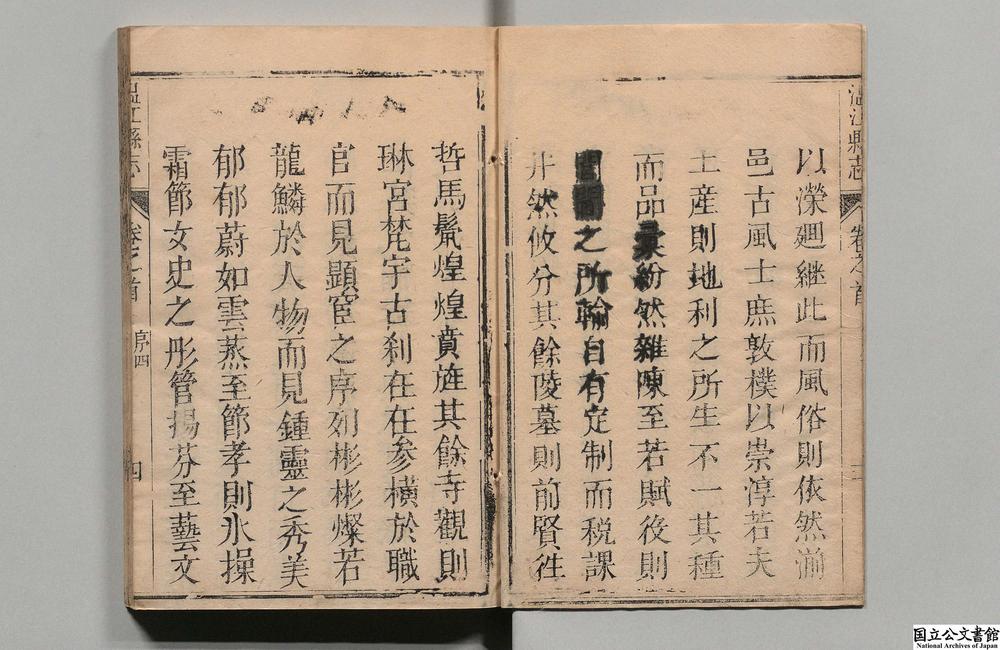 溫江縣志 卷之首 三
以濚廻継此而風俗則依然淵
邑古風士庶敦樸以崇淳若夫
土産則地利之所生不一其種
而品彙紛然雜陳至若賦役則
之所輸自有定制而税課
井然攸分其餘陵墓則前賢徃
哲馬鬛煌煌賁旌其餘寺觀則
琳宮梵宇古刹在在参横於職
官而見顯宦之序列彬彬燦若
龍鱗於人物而見鍾靈之秀美
郁郁蔚如雲蒸至節孝則氷操
霜節女史之彤管揚芬至藝文
溫江縣志 卷之首 序四 四
国立公文書館
National Archives of Japan